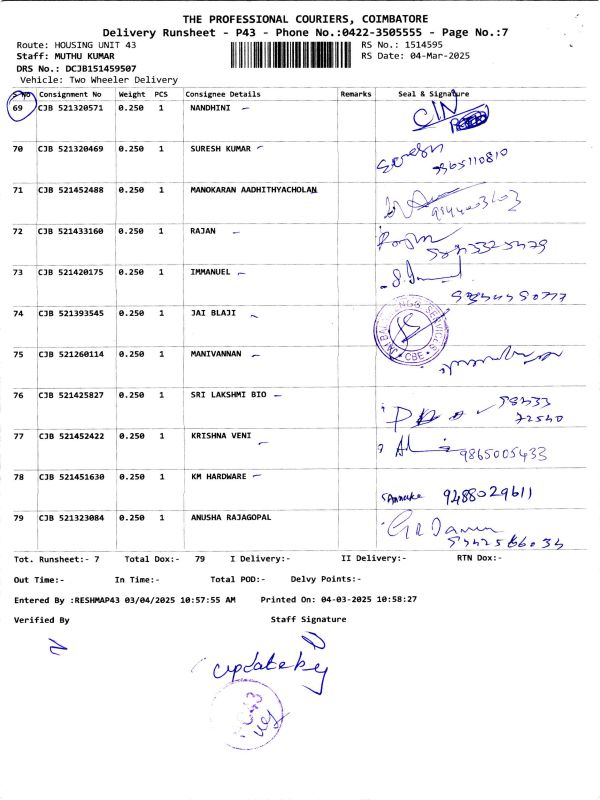 THE PROFESSIONAL COURIERS, COIMBATORE
Delivery Runsheet - P43 - Phone No.:0422-3505555 - Page No.:7
Route: HOUSING UNIT 43
RS No.: 1514595
Staff: MUTHU KUMAR
RS Date: 04-Mar-2025
DRS No.: DCJB151459507
Vehicle: Two Wheeler Delivery
SNO Consignment No Weight PCS Consignee Details Remarks Seal & Signature
69 CJB 521320571 0.250 1 NANDHINI
70 CJB 521320469 0.250 1 SURESH KUMAR
71 CJB 521452488 0.250 1 MANOKARAN AADHITHYACHOLAN
72 CJB 521433160 0.250 1 RAJAN
73 CJB 521420175 0.250 1 IMMANUEL
74 CJB 521393545 0.250 1 JAI BLAJI
75 CJB 521260114 0.250 1 MANIVANNAN
76 CJB 521425827 0.250 1 SRI LAKSHMI BIO
77 CJB 521452422 0.250 1 KRISHNA VENI 9865005433
78 CJB 521451630 0.250 1 KM HARDWARE 9488029611
79 CJB 521323084 0.250 1 ANUSHA RAJAGOPAL
Tot. Runsheet:- 7 Total Dox:- 79 I Delivery:- II Delivery:- RTN Dox:-
Out Time:- In Time:- Total POD:- Delvy Points:-
Entered By :RESHMAP43 03/04/2025 10:57:55 AM Printed On: 04-03-2025 10:58:27
Verified By Staff Signature
update by